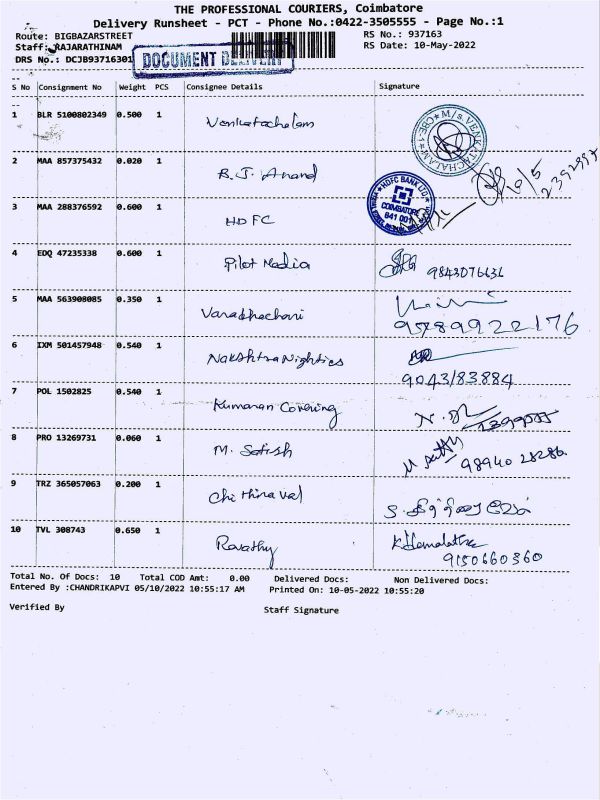 THE PROFESSIONAL COURIERS, Coimbatore
Delivery Runsheet - PCT - Phone No.:0422-3505555 - Page No.:1
Route: BIGBAZARSTREET
RS No.: 937163
Staff: RAJARATHINAM
RS Date: 10-May-2022
DRS No.: DCJB93716301
DOCUMENT DELIVERY
S No Consignment No Weight PCS Consignee Details Signature
1 BLR 5100802349 0.500 1 Venkatachalam
M/s. VENKATACHALAM
CBE-1
2 MAA 857375432 0.020 1 B.J. Anand
3 MAA 288376592 0.600 1 HDFC
HDFC BANK LTD
COIMBATORE
641 001
4 EDQ 47235338 0.600 1 Pilot Media 9843076636
5 MAA 563908085 0.350 1 Varadhachari
9789922176
6 IXM 501457948 0.540 1 Nakshtra Nighties
9043183884
7 POL 1502825 0.540 1 Kumaran Covering
8 PRO 13269731 0.060 1 M. Satish
98940 28286
9 TRZ 365057063 0.200 1 Chithiraval
10 TVL 308743 0.650 1 Revathy K Hemalatha
9150660360
Total No. Of Docs: 10 Total COD Amt: 0.00 Delivered Docs: Non Delivered Docs:
Entered By :CHANDRIKAPVI 05/10/2022 10:55:17 AM Printed On: 10-05-2022 10:55:20
Verified By Staff Signature